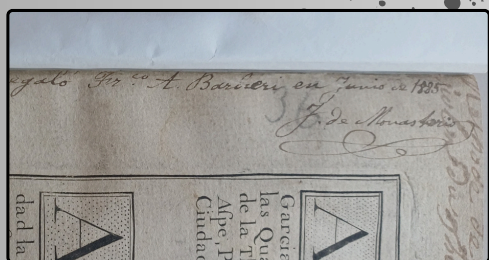 galó Fr.co A. Barbieri en Junio de 1885
J. de Monasterio
A
Garcia
las Qua
de la Th
Aspe, P
Ciudad
A
dad la